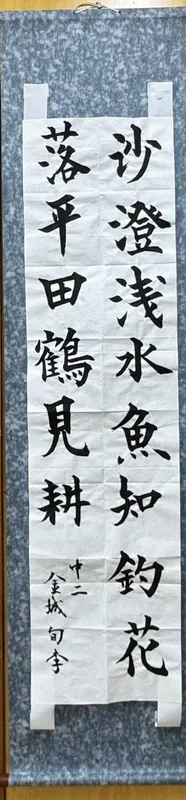 沙澄浅水魚知釣花
落平田鶴見耕
中二
金城旬李